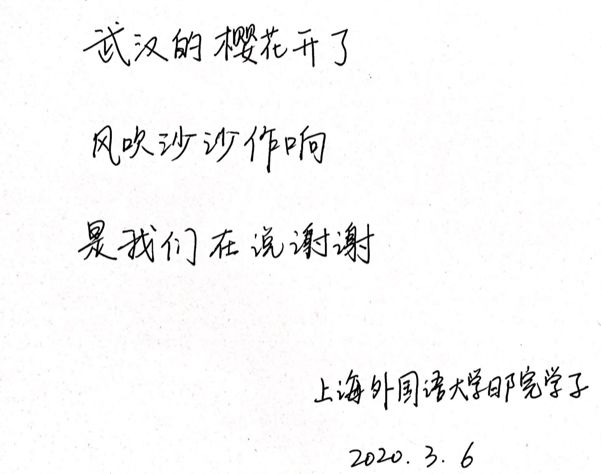 武汉的樱花开了
风吹沙沙作响
是我们在说谢谢
上海外国语大学日院学子
2020.3.6